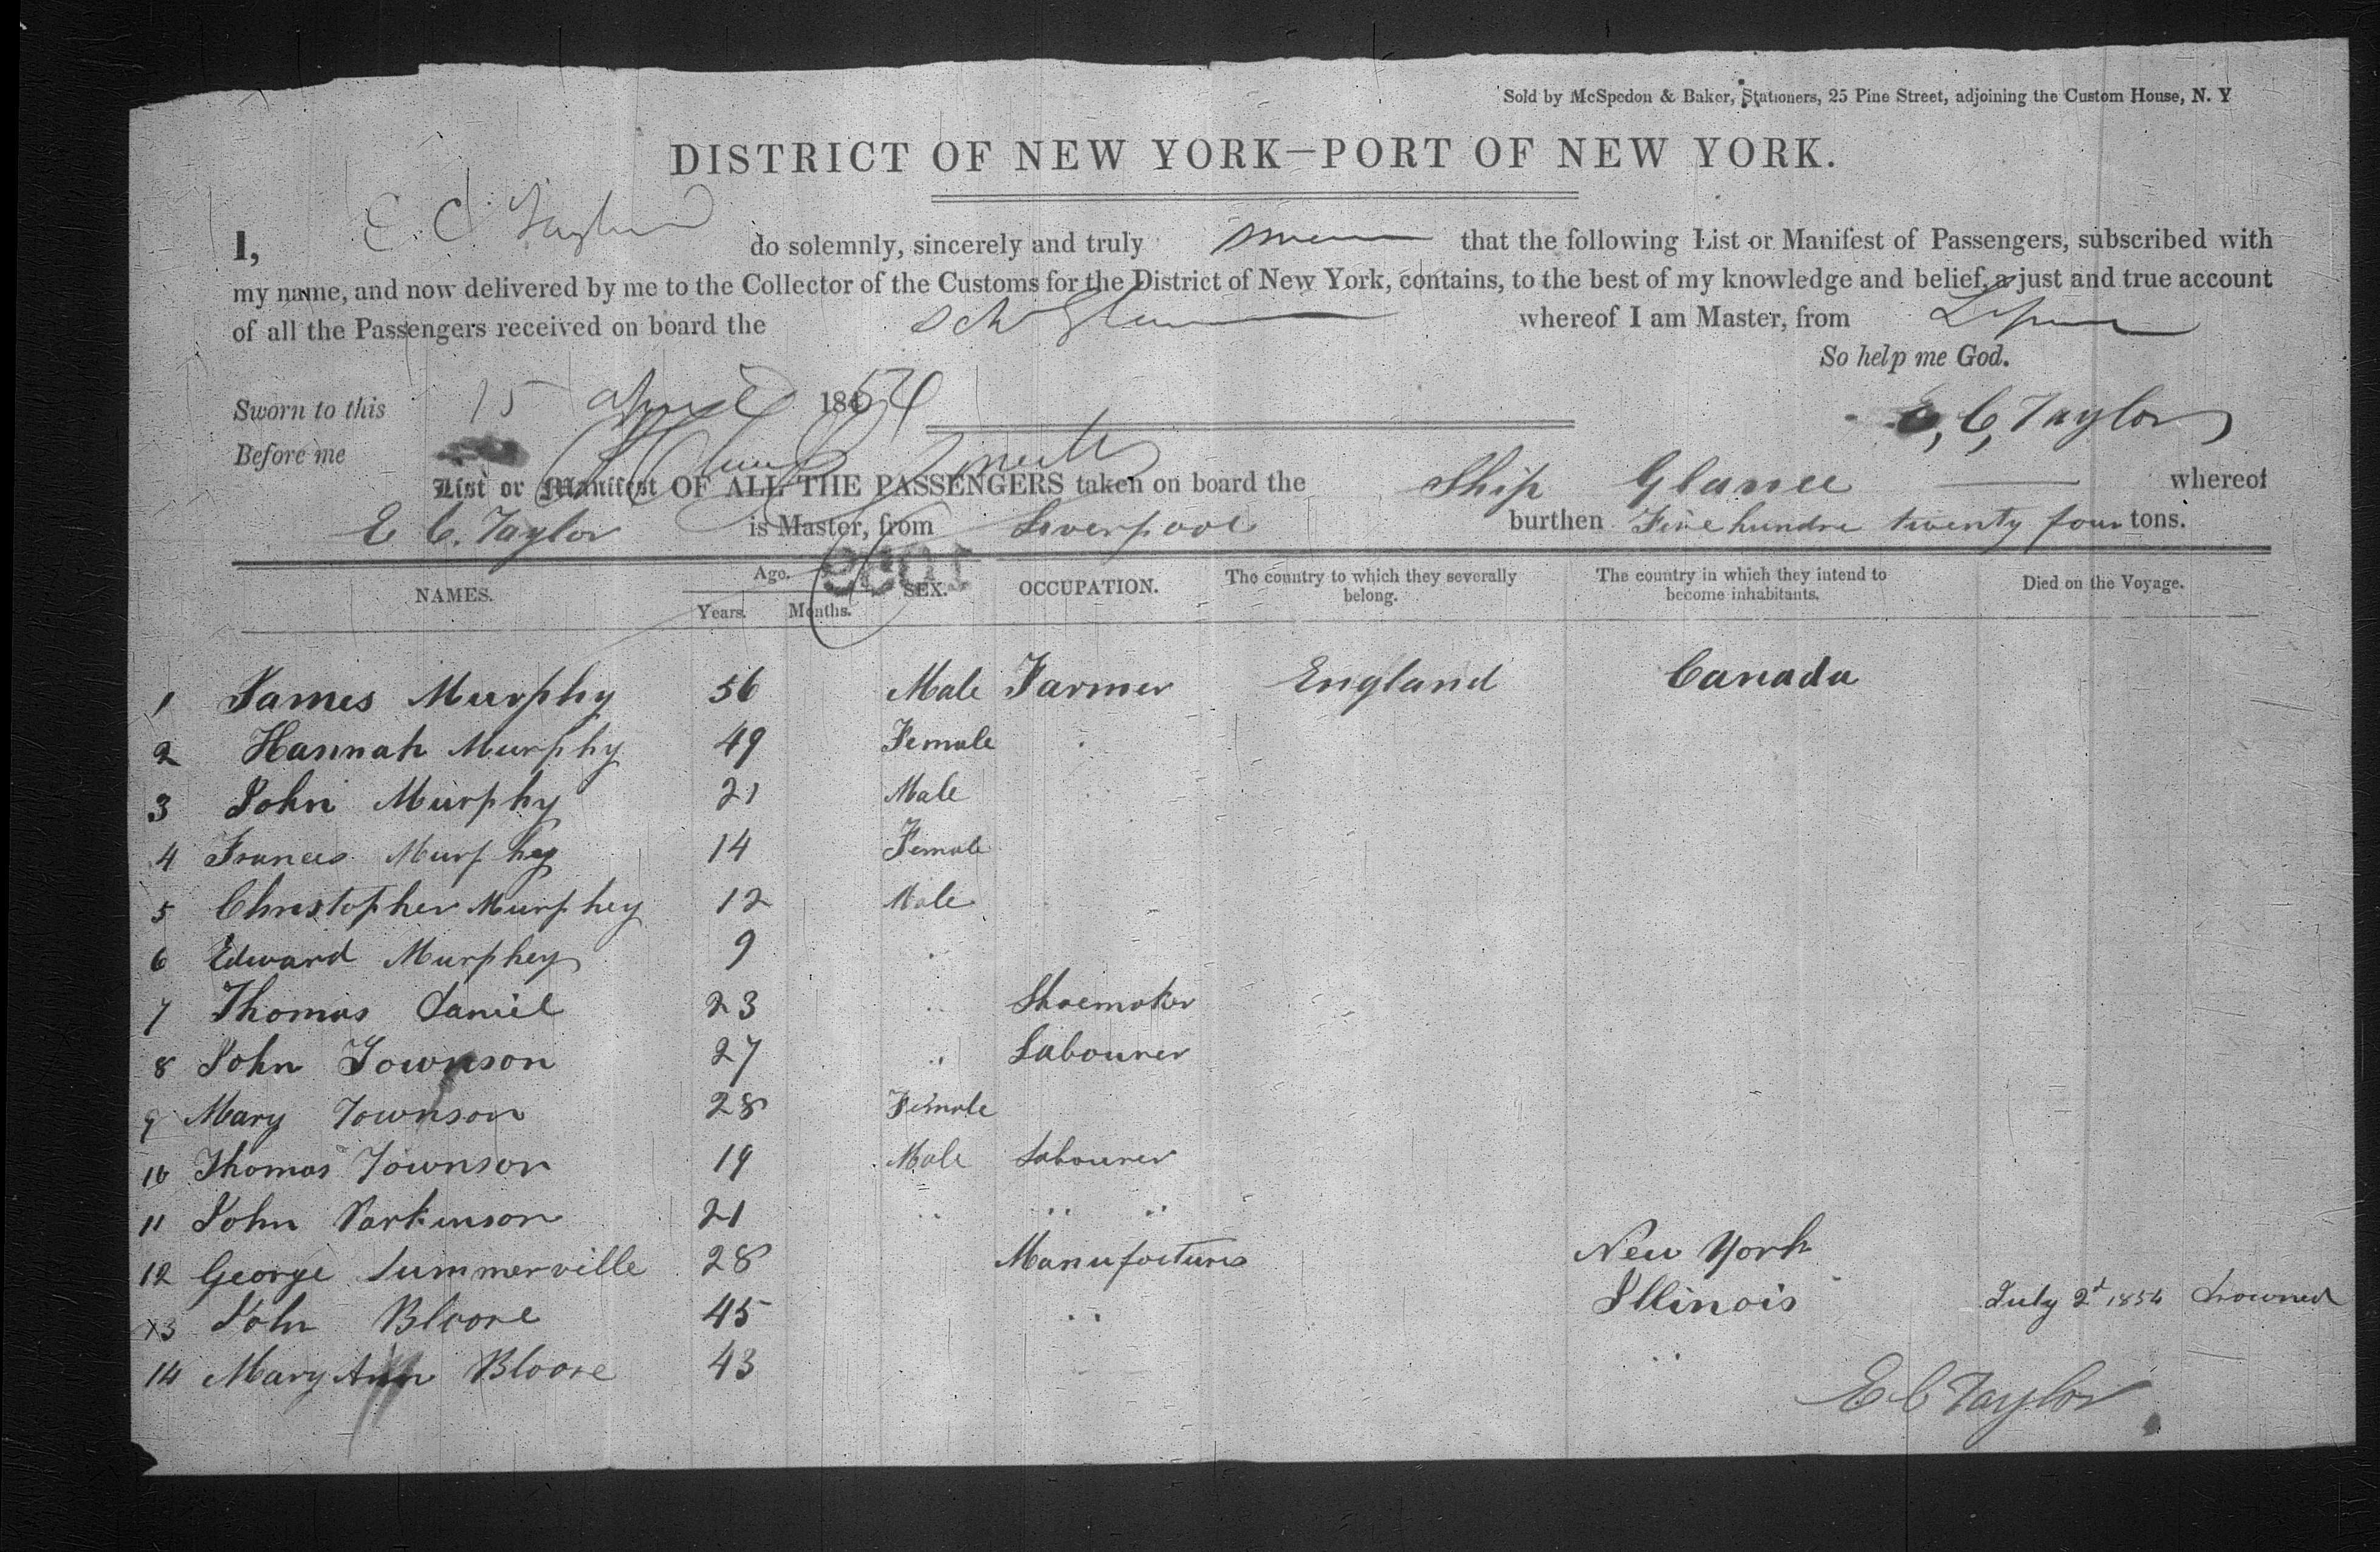 Sold by McSpedon & Baker, Stationers, 25 Pine Street, adjoining the Custom House, N. Y
DISTRICT OF NEW YORK—PORT OF NEW YORK.
I, E. C. Taylor do solemnly, sincerely and truly swear that the following List or Manifest of Passengers, subscribed with
my name, and now delivered by me to the Collector of the Customs for the District of New York, contains, to the best of my knowledge and belief, a just and true account
of all the Passengers received on board the whereof I am Master, from
So help me God.
Sworn to this 15 1854
Before me
E, C, Taylor
List or Manifest OF ALL THE PASSENGERS taken on board the Ship Glance whereof
E C. Taylor is Master, from Liverpool burthen Five hundre twenty four tons.
NAMES. Age. Years. Months. SEX. OCCUPATION. The country to which they severally belong. The country in which they intend to become inhabitants. Died on the Voyage.
1 James Murphy 56 Male Farmer England Canada
2 Hannah Murphy 49 Female
3 John Murphy 21 Male
4 Frances Murphey 14 Female
5 Christopher Murphey 12 Male
6 Edward Murphey 9
7 Thomas Daniel 23 " Shoemaker
8 John Townson 27 " Labourer
9 Mary Townson 28 Female
10 Thomas Townson 19 Male Labourer
11 John Parkinson 21 " " "
12 George Summerville 28 Manufactures New York
13 John Bloore 45 " Illinois July 2d 1854 Drowned
14 Mary Ann Bloore 43 "
E C Taylor